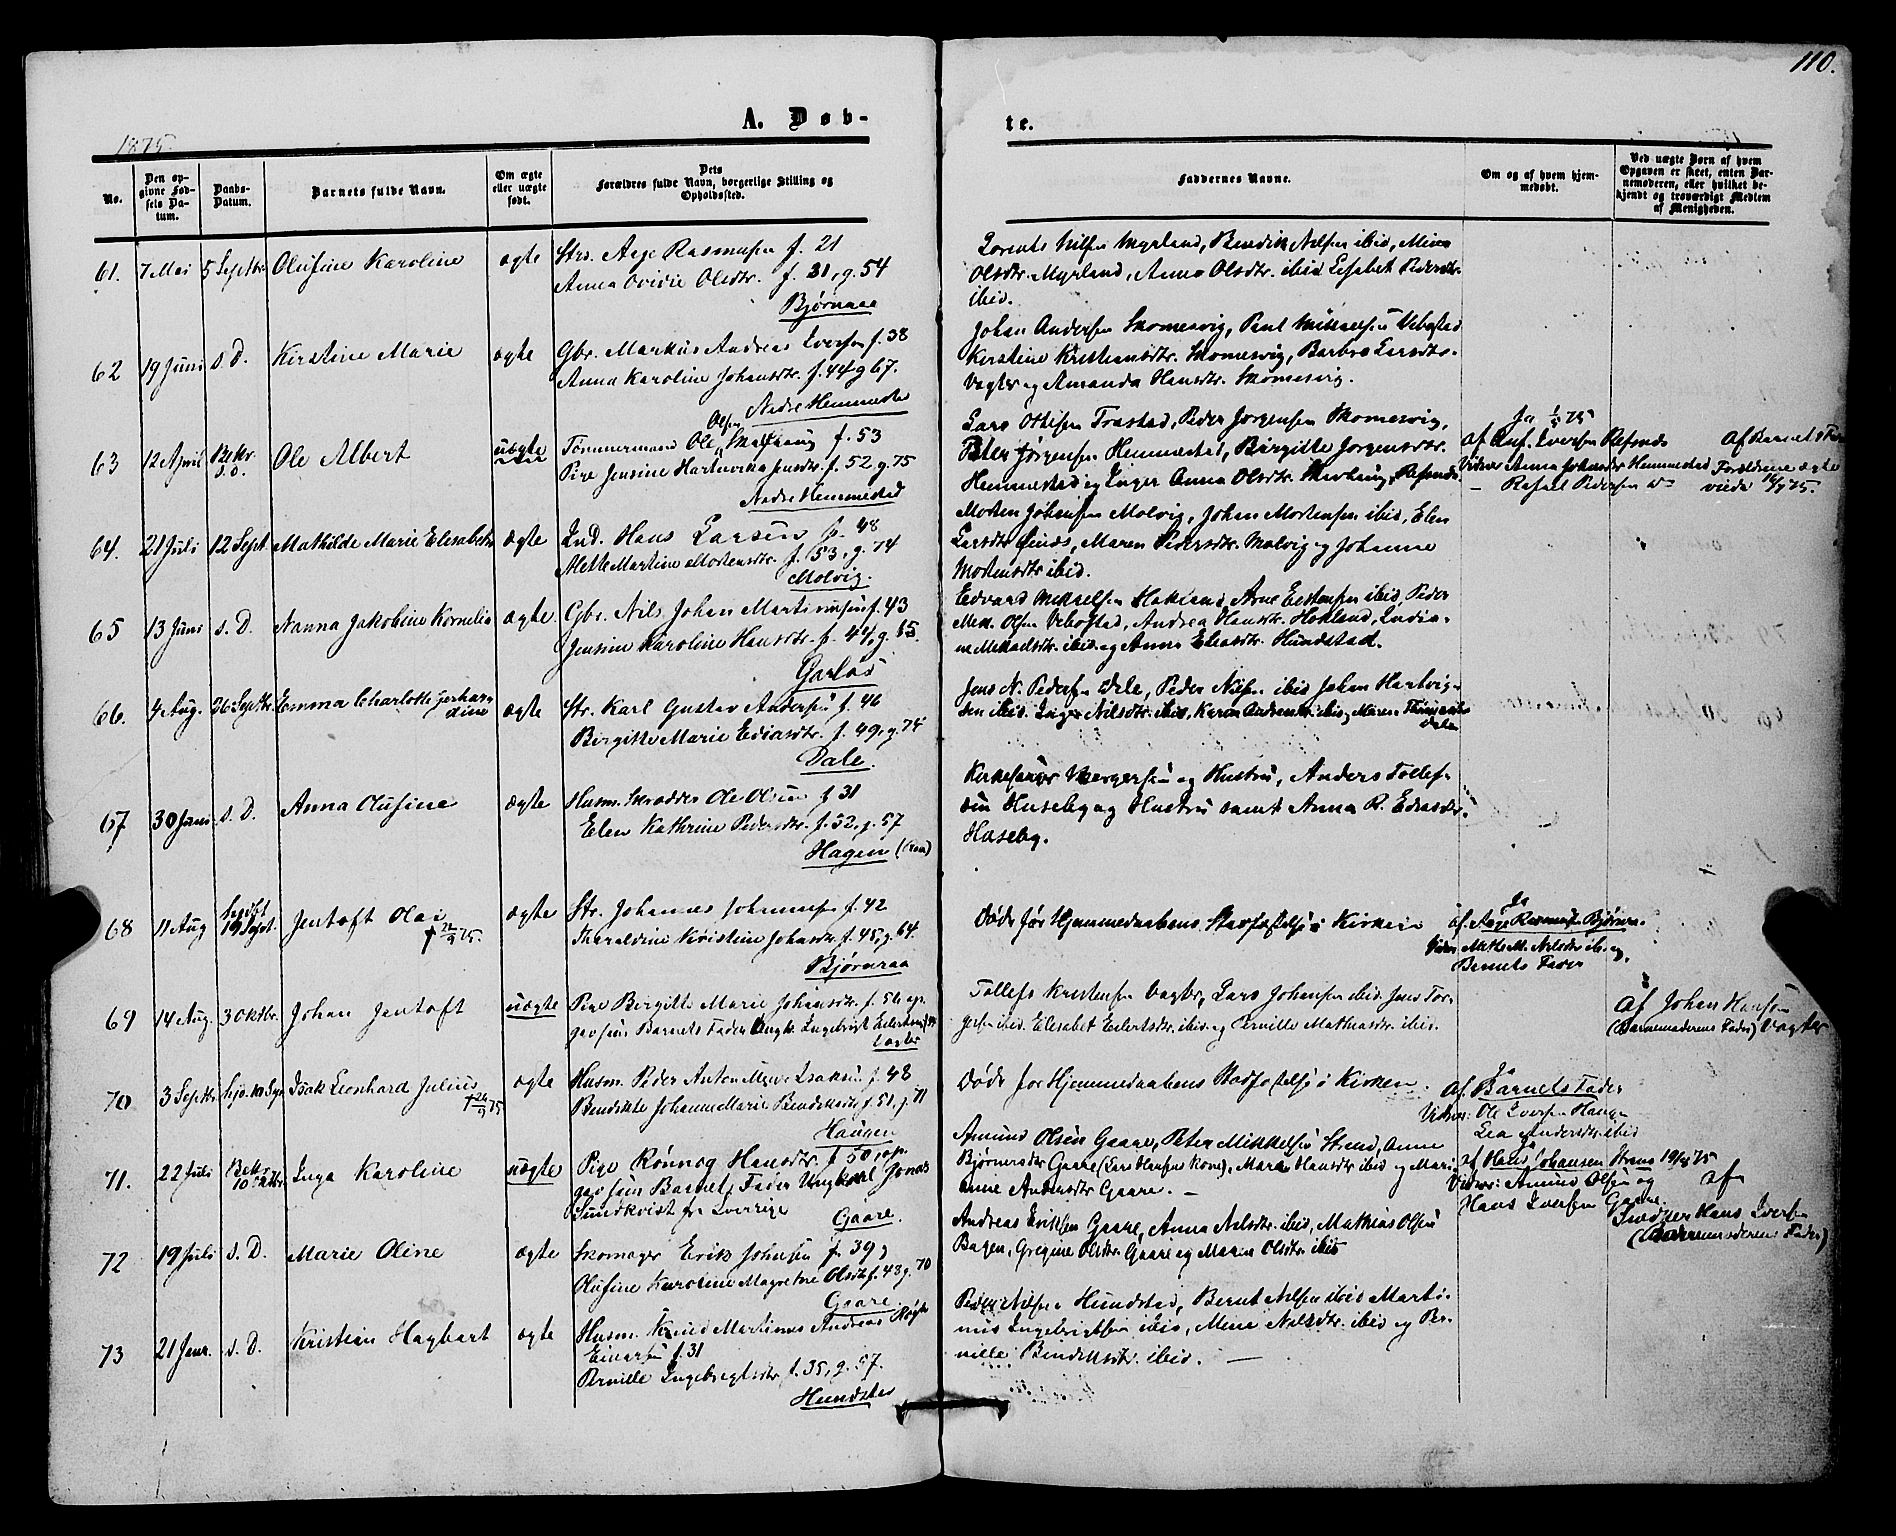 110.
1875.
A. Døb-
te.
No.
Den op-
givne Fød-
sels Da-
tum.
Daabs-
Datum.
Barnets fulde Navn.
Om ægte
eller uægte
født.
Dets
Forældres fulde Navn, borgerlige Stilling og
Opholdssted.
Faddernes Navne.
Om og af hvem hjem-
medøbt.
Ved uægte Børn af hvem
Opgaven er skeet, enten Bar-
nemoderen, eller hvilket be-
kjendt og troværdigt Medlem
af Menigheden.
61. 7 Mai 5 Septbr. Olufine Karoline ægte Str. Aage Rasmusen f. 21
Anna Ovidie Olsdtr. f. 31, g. 54
Bjørnraa
Lorents Nilsen Myrland, Bendik Nilsen ibid, Mina
Olsdtr. Myrland, Anna Olsdtr. ibid Elisabet Pedersdtr.
ibid.
62 19 Juni s. D. Kirstine Marie ægte Gbr. Markus Andreas Iversen f. 38
Anna Karoline Johansdtr. f. 44 g 67.
Nedre Hemmestad
Johan Andersen Skomesvig, Paul Mikkelsen Vebostad
Kirstine Kristiansdtr. Skomesvig, Barbro Larsdtr.
Vagter og Amanda Hansdtr. Skomesvig.
63 12 April Bekr. s. D. Ole Albert uægte Tømmermand Ole Olsen Skavhaug f. 53
Pige Jensine Hartvikka Jensdtr. f. 52, g. 75
Nedre Hemmestad
Lars Ottesen Trastad, Peder Jørgensen Skomesvig,
Peter Jørgensen Hemmestad, Birgitte Jørgensdtr.
Hemmestad og Inger Anna Olsdtr. Skavhaug, Refsnes.
Ja 75
af Iversen Refsnes
Vidner Anna Johansdtr Hemmestad
– Rafael Pedersen do
Af Barnets Fader
Forældrene ægte
viede 75.
64. 21 Juli 12 Sept. Mathilde Marie Elisabeth ægte Ind. Hans Larsen f. 48
Mette Martine Mortensdtr. f. 53, g. 74
Molvig.
Morten Johansen Molvig, Johan Mortensen ibid, Elen
Larsdtr. Maren Pedersdtr. Molvig og Johanne
Mortensdtr ibid.
65 13 Juni s. D. Nanna Jakobine Kornelia ægte Gbr. Nils Johan Martinusen f. 43
Jensine Karoline Hansdtr. f. 44, g. 65.
Garlos
Edvard Mikkelsen Hokland, Arne Eestensen ibid, Peder
Mek. Olsen Vebostad, Andrea Hansdtr. Hokland, India-
ne Mikkelsdtr. ibid. og Anna Eliasdtr. Hundstad.
66. 4 Aug. 26 Septbr. Emma Charlotte Gerhar-
dine ægte Str. Karl Gustav Andersen f. 46
Birgitte Marie Ediasdtr. f. 49, g. 75
Dale.
Jens N. Pedersen Dale, Peder Nilsen ibid Johan Hartvig-
sen ibid. Inger Nilsdtr. ibid, Karen Andreasdtr ibid og Maren
Dalen
67 30 Juni s. D. Anna Olufine ægte Husm. Skrædder Ole Olsen f 31
Elen Kathrine Pedersdtr. f. 32, g. 57
Hagen
Kirkesanger Mergersen og Hustru, Anders Tollef-
sen Huseby og Hustru samt Anna R. Ediasdtr.
Huseby.
68 11 Aug hjdbt 19 Sept. Jentoft Olai ægte Str. Johannes Johansen f. 42
† 22/9 75.
Tharaldine Kristine Johansdtr. f. 45, g. 64.
Bjørnraa
Døde før Hjemmedaabens Stadfæstelse i Kirken
Ja
af Aage Rasmusen Bjørnra.
Vidner Mette M. Nilsdtr ibid og
Barnets Fader
69 14 Aug. 3 Oktbr. Johan Jentoft uægte Pige Birgitte Marie Johansdtr. f. 56 op-
gav som Barnets Fader Ungkr. Ingebrigt Eilertsen
Vagter
Tollef Kristensen Vagter, Lars Johansen ibid. Jens Tor-
gersen ibid, Elisabet Eilertsdtr. ibid og Pernille Mathiasdtr. ibid.
Af Johan Hansen
(Barnemoderens Fader) Vagter
70 3 Septbr. hjd. 10 Sept. Isak Leonhard Julius ægte Husm. Peder Anton Meyer Isaksen f. 48
† 24/9 75
Bendikte Johanne Marie Bendiksdtr f. 51, g. 71
Haugen
Døde før Hjemmedaabens Stadfæstelse i Kirken.
Ja
Af Barnets Fader
Vidner: Ole Iversen Haugen
Lea Andersdtr. ibid
71. 22 Juli Bekr. 10 Oktbr. Inga Karoline uægte Pige Rønnog Hansdtr. f 50, op-
gav som Barnets Fader Ungkarl Jonas
Sundkvist fra Sverrige
Gaare.
Amund Olsen Gaare, Peter Mikkelsen Strand, Anne
Bjørnersdtr Gaare (Lars Hansens Kone), Mara Hansdtr ibid og Mari-
anne Andersdtr Gaare. –
Ja
af Hans Johansen Strand 19/8 75
Vidner: Amund Olsen og
Hans Iversen Gaare.
af
Hans Iversen
(Barnemoderens Fader)
72 19 Juli s. D. Marie Oline ægte Skomager Erik Johnsen f. 39,
Olufine Karoline Magretha Olsdtr f. 48 g. 70
Gaare
Andreas Eriksen Gaare, Anna Nilsdtr. ibid, Mathias Olsen
Bagen, Gregine Olsdtr. Gaare og Maren Olsdtr. ibid
73 21 Janr. s. D. Kristian Hagbart ægte Husm. Knud Martinus Andreas Høgh
Einarsen f. 31
Pernille Ingebregtsdtr. f. 35, g. 57.
Hundstad
Peder Nilsen Hundstad, Bernt Nilsen ibid Marti-
nus Ingebrigtsen ibid, Mina Nilsdtr. ibid og Per-
nille Bendiksdtr. ibid. –